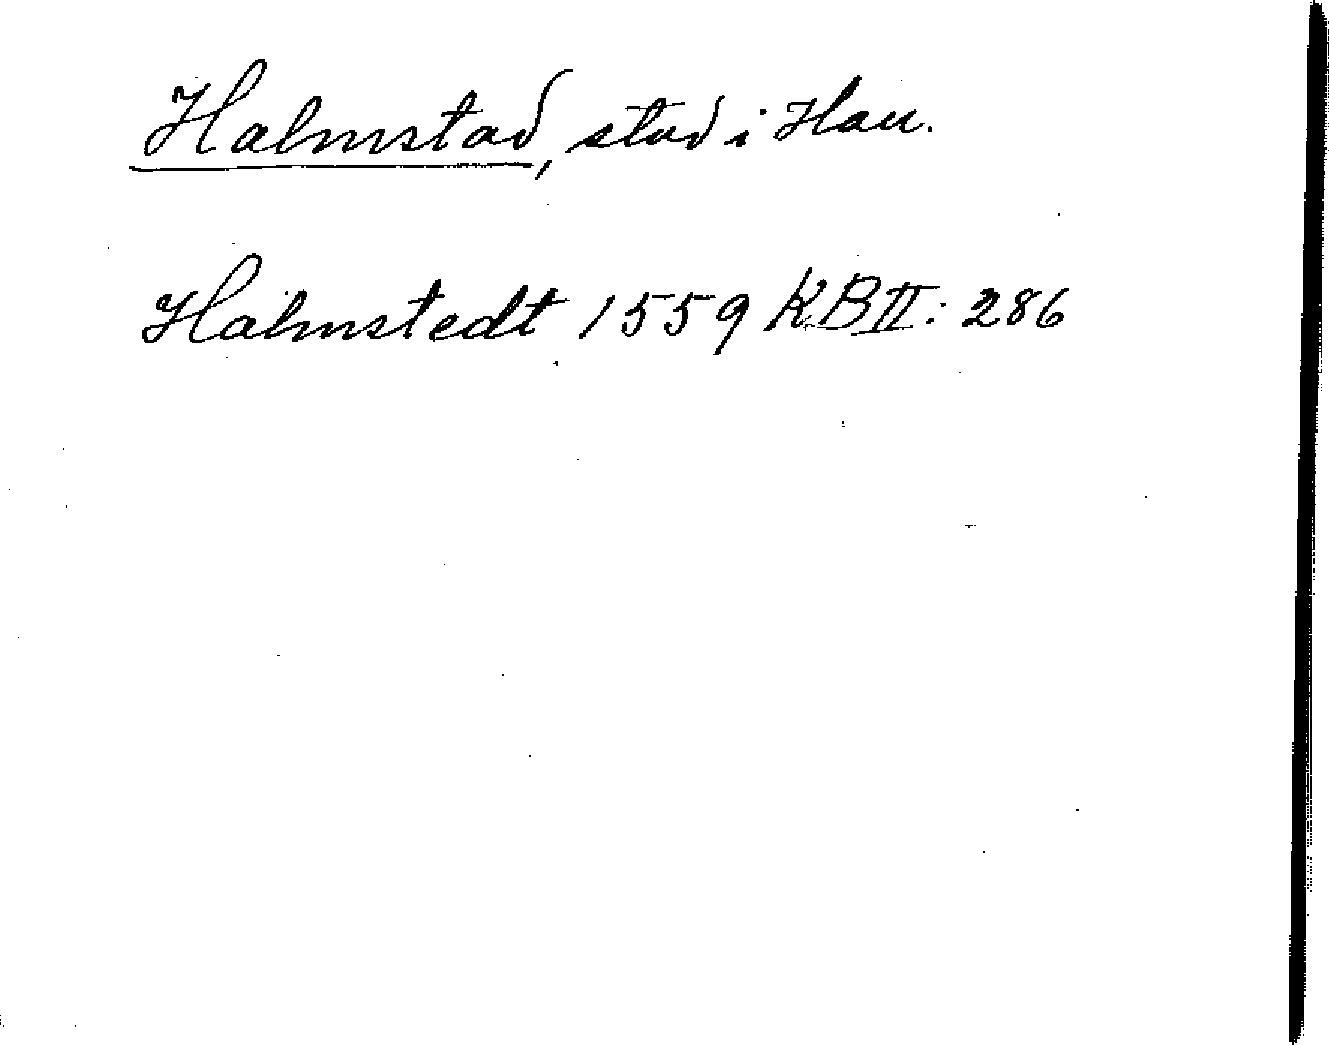 Halmstad, stad i Hall.
Halmstedt 1559 KB II: 286